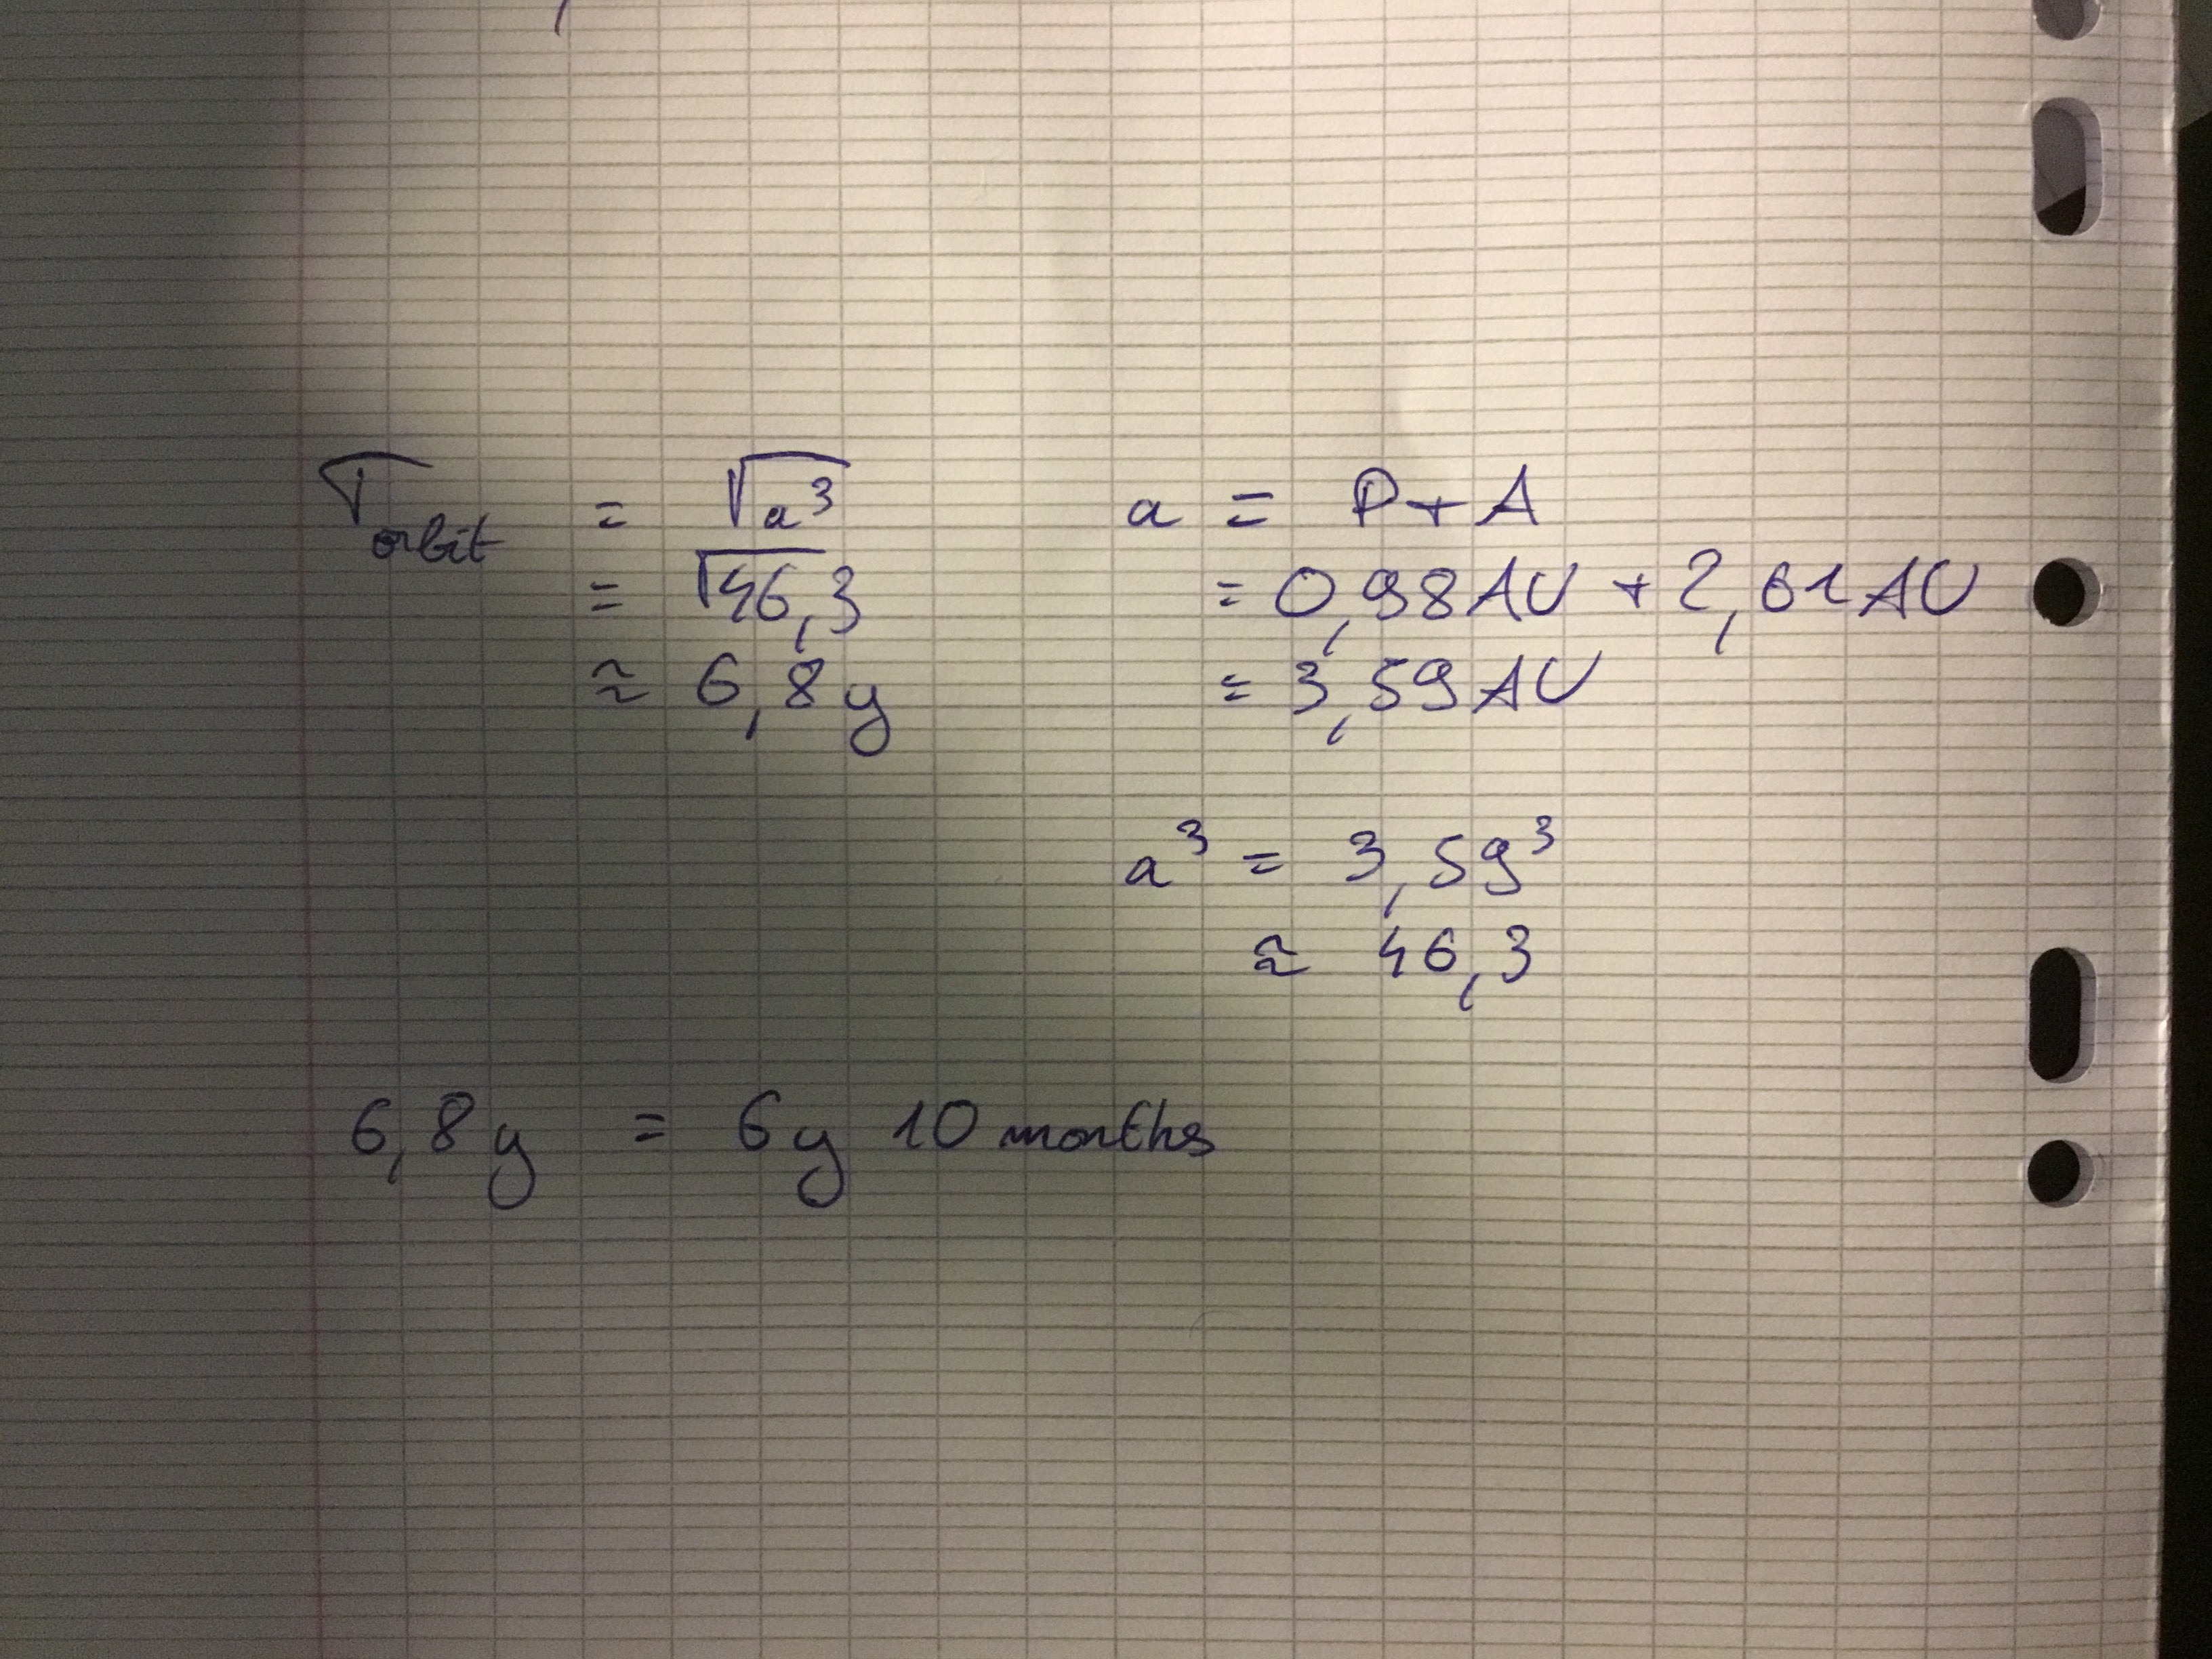 T orbit = √a³
= √46,3
≈ 6,8 y
a = P + A
= 0,98 AU + 2,61 AU
= 3,59 AU
a³ = 3,59³
≈ 46,3
6,8 y = 6 y 10 months